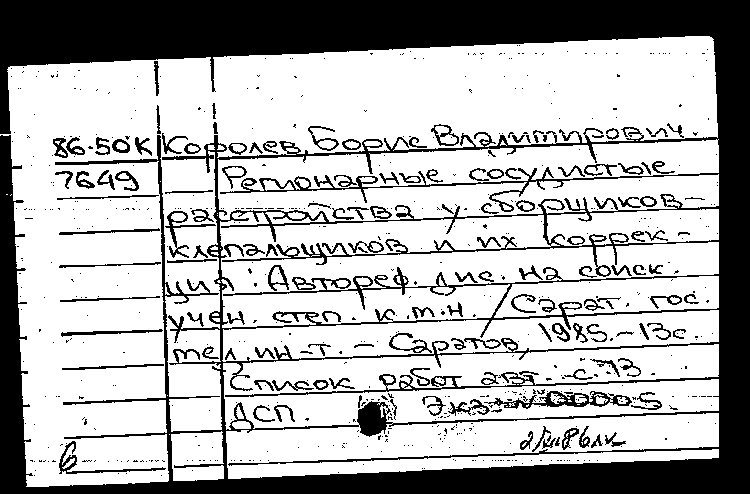 86-50К Королев, Борис Владимирович.
7649 Регионарные сосудистые
расстройства у сборщиков-
клепальщиков и их коррек-
ция : Автореф. дис. на соиск.
учен. степ. к.м.н. / Сарат. гос.
мед. ин-т. - Саратов, 1985. - 13с.
Список работ авт.: с. 13.
ДСП. Экз. N 00005
б